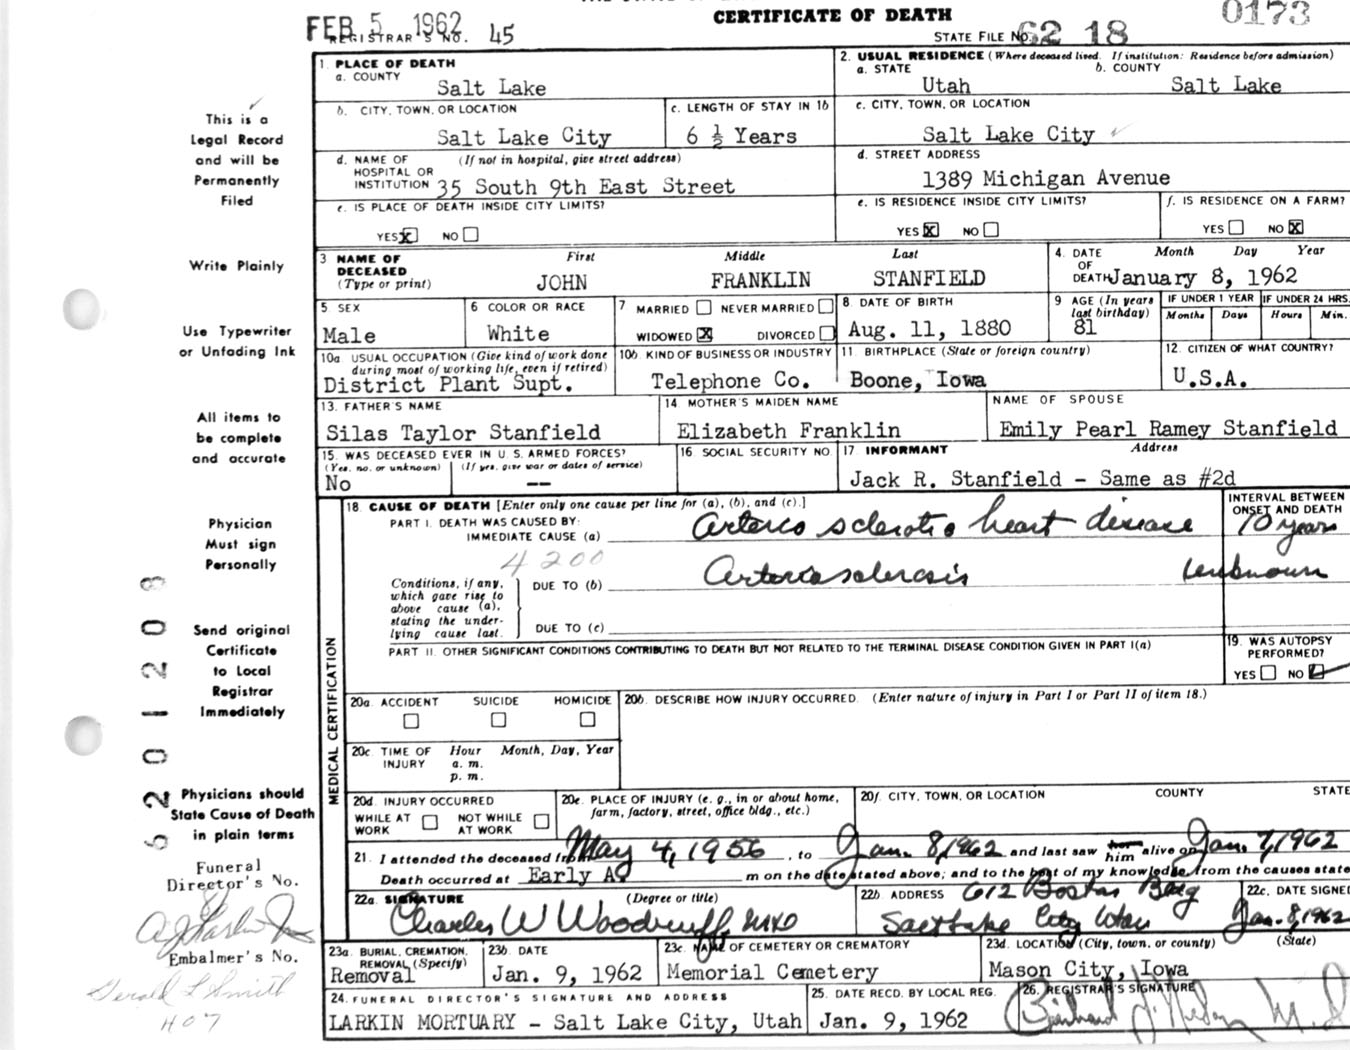 CERTIFICATE OF DEATH
0173
FEB 5 1962
REGISTRAR'S NO. 45
STATE FILE NO. 62 18
1. PLACE OF DEATH
a. COUNTY
Salt Lake
2. USUAL RESIDENCE (Where deceased lived. If institution: Residence before admission)
a. STATE b. COUNTY
Utah Salt Lake
b. CITY, TOWN, OR LOCATION
Salt Lake City
c. LENGTH OF STAY IN 1b
6 ½ Years
c. CITY, TOWN, OR LOCATION
Salt Lake City
d. NAME OF (If not in hospital, give street address)
HOSPITAL OR
INSTITUTION 35 South 9th East Street
d. STREET ADDRESS
1389 Michigan Avenue
e. IS PLACE OF DEATH INSIDE CITY LIMITS?
YES X NO
e. IS RESIDENCE INSIDE CITY LIMITS?
YES X NO
f. IS RESIDENCE ON A FARM?
YES NO X
3 NAME OF DECEASED (Type or print)
First Middle Last
JOHN FRANKLIN STANFIELD
4. DATE OF DEATH Month Day Year
January 8, 1962
5 SEX
Male
6 COLOR OR RACE
White
7 MARRIED NEVER MARRIED
WIDOWED X DIVORCED
8 DATE OF BIRTH
Aug. 11, 1880
9 AGE (In years last birthday)
81
IF UNDER 1 YEAR IF UNDER 24 HRS.
Months Days Hours Min.
10a USUAL OCCUPATION (Give kind of work done
during most of working life, even if retired)
District Plant Supt.
10b. KIND OF BUSINESS OR INDUSTRY
Telephone Co.
11. BIRTHPLACE (State or foreign country)
Boone, Iowa
12. CITIZEN OF WHAT COUNTRY?
U.S.A.
13. FATHER'S NAME
Silas Taylor Stanfield
14. MOTHER'S MAIDEN NAME
Elizabeth Franklin
NAME OF SPOUSE
Emily Pearl Ramey Stanfield
15. WAS DECEASED EVER IN U.S. ARMED FORCES?
(Yes, no, or unknown) (If yes, give war or dates of service)
No --
16 SOCIAL SECURITY NO.
17. INFORMANT Address
Jack R. Stanfield - Same as #2d
18. CAUSE OF DEATH [Enter only one cause per line for (a), (b), and (c).]
PART I. DEATH WAS CAUSED BY:
IMMEDIATE CAUSE (a) Arterio sclerotic heart disease
INTERVAL BETWEEN
ONSET AND DEATH
10 years
4200
Conditions, if any,
which gave rise to
above cause (a),
stating the under-
lying cause last.
DUE TO (b) Arteriosclerosis unknown
DUE TO (c)
PART II. OTHER SIGNIFICANT CONDITIONS CONTRIBUTING TO DEATH BUT NOT RELATED TO THE TERMINAL DISEASE CONDITION GIVEN IN PART I(a)
19. WAS AUTOPSY
PERFORMED?
YES NO
MEDICAL CERTIFICATION
20a. ACCIDENT SUICIDE HOMICIDE
20b. DESCRIBE HOW INJURY OCCURRED. (Enter nature of injury in Part I or Part II of item 18.)
20c. TIME OF INJURY Hour Month, Day, Year
a. m.
p. m.
20d. INJURY OCCURRED
WHILE AT WORK NOT WHILE AT WORK
20e. PLACE OF INJURY (e. g., in or about home,
farm, factory, street, office bldg., etc.)
20f. CITY, TOWN, OR LOCATION COUNTY STATE
21. I attended the deceased from May 4, 1956, to Jan. 8, 1962 and last saw him alive on Jan. 7, 1962
Death occurred at Early A. m on the date stated above; and to the best of my knowledge from the causes state
22a. SIGNATURE (Degree or title)
Charles W Woodruff, MD
22b. ADDRESS 612 Boston Bldg
Salt Lake City Utah
22c. DATE SIGNED
Jan. 8, 1962
23a. BURIAL, CREMATION,
REMOVAL (Specify)
Removal
23b. DATE
Jan. 9, 1962
23c. NAME OF CEMETERY OR CREMATORY
Memorial Cemetery
23d. LOCATION (City, town, or county) (State)
Mason City, Iowa
24. FUNERAL DIRECTOR'S SIGNATURE AND ADDRESS
LARKIN MORTUARY - Salt Lake City, Utah
25. DATE RECD. BY LOCAL REG.
Jan. 9, 1962
26. REGISTRAR'S SIGNATURE
M.D.
This is a
Legal Record
and will be
Permanently
Filed
Write Plainly
Use Typewriter
or Unfading Ink
All items to
be complete
and accurate
Physician
Must sign
Personally
Send original
Certificate
to Local
Registrar
Immediately
Physicians should
State Cause of Death
in plain terms
Funeral
Director's No.
Embalmer's No.
Gerald L Smith
407